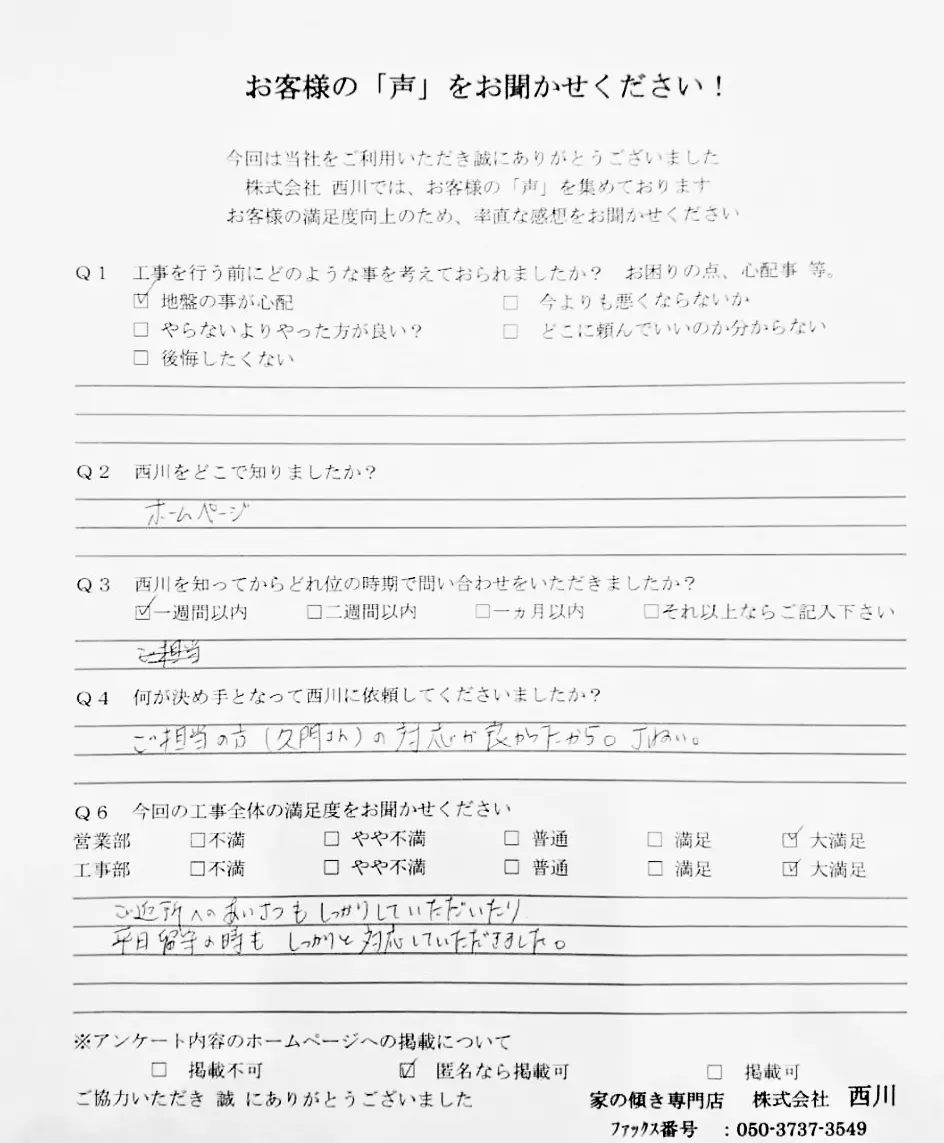 お客様の「声」をお聞かせください！
今回は当社をご利用いただき誠にありがとうございました
株式会社 西川では、お客様の「声」を集めております
お客様の満足度向上のため、率直な感想をお聞かせください
Ｑ１　工事を行う前にどのような事を考えておられましたか？　お困りの点、心配事 等。
☑ 地盤の事が心配　□ 今よりも悪くならないか
□ やらないよりやった方が良い？　□ どこに頼んでいいのか分からない
□ 後悔したくない
Ｑ２　西川をどこで知りましたか？
ホームページ
Ｑ３　西川を知ってからどれ位の時期で問い合わせをいただきましたか？
☑一週間以内　□二週間以内　□一ヵ月以内　□それ以上ならご記入下さい
ご担当
Ｑ４　何が決め手となって西川に依頼してくださいましたか？
ご担当の方（久門さん）の対応が良かったから。丁ねい。
Ｑ６　今回の工事全体の満足度をお聞かせください
営業部　□不満　□ やや不満　□ 普通　□ 満足　☑ 大満足
工事部　□不満　□ やや不満　□ 普通　□ 満足　☑ 大満足
ご近所へのあいさつもしっかりしていただいたり
平日留守の時も しっかりと対応していただきました。
※アンケート内容のホームページへの掲載について
□ 掲載不可　☑ 匿名なら掲載可　□ 掲載可
ご協力いただき 誠 にありがとうございました
家の傾き専門店　株式会社　西川
ﾌｧｯｸｽ番号　：050-3737-3549